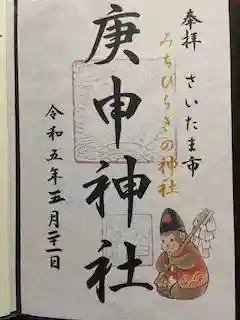 奉拝
さいたま市
みちひらきの神社
庚申神社
令和五年五月二十一日